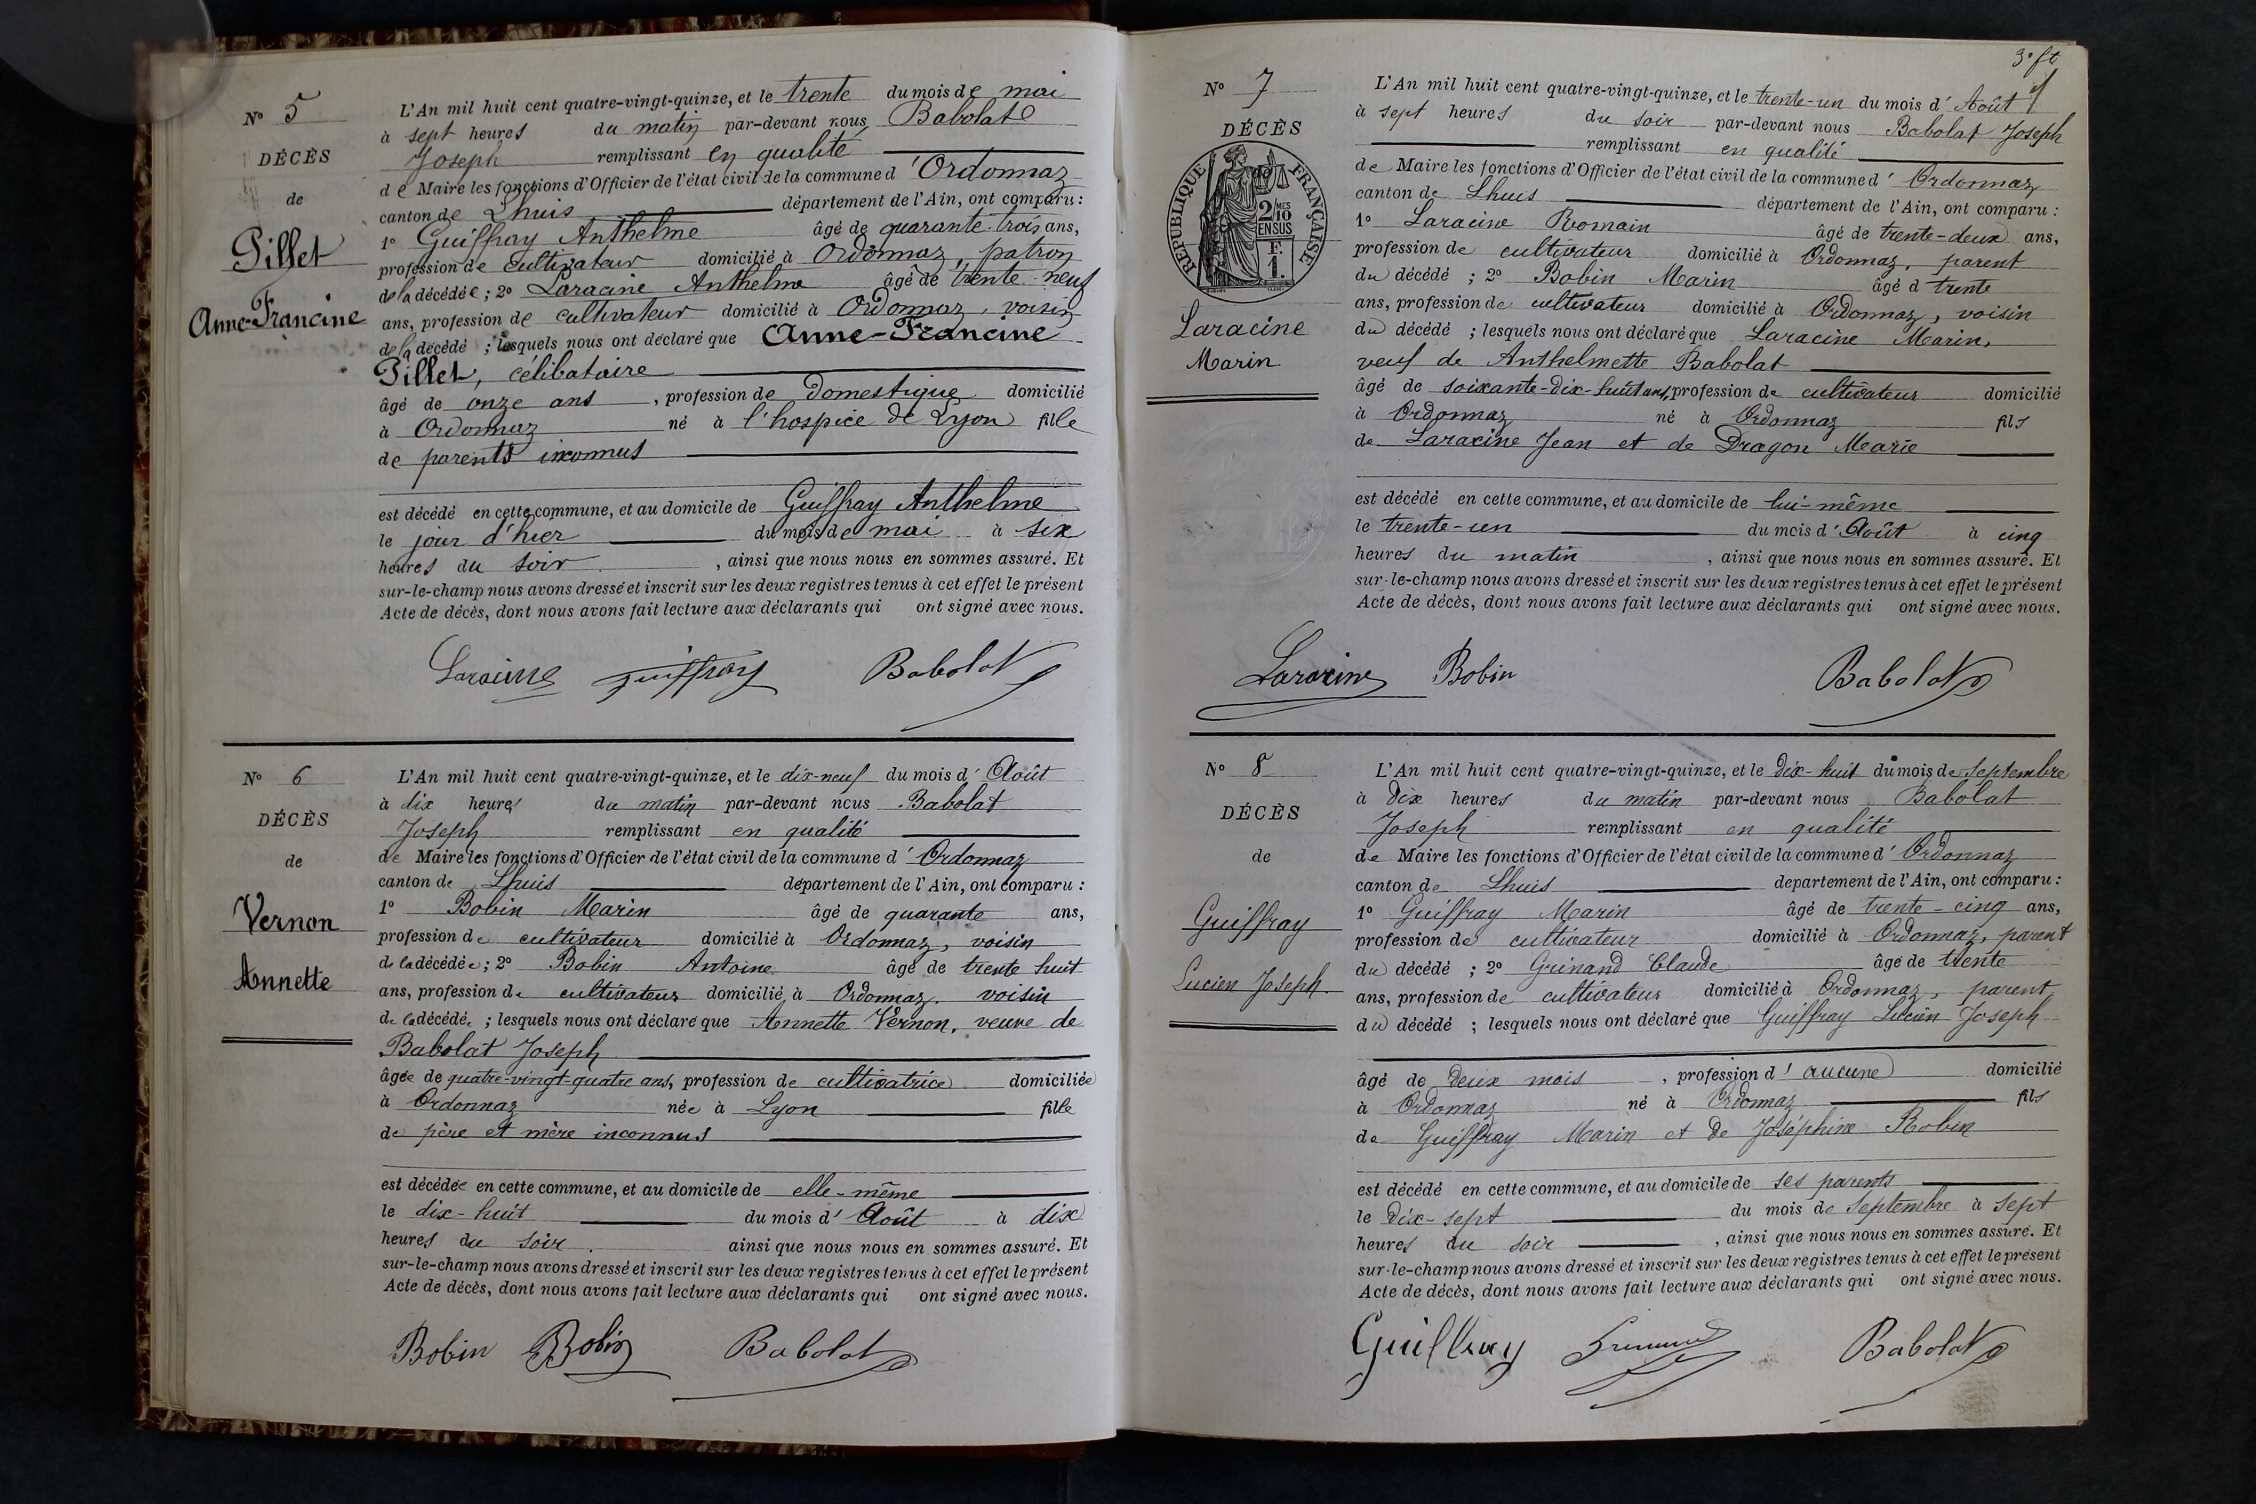 N° 5
DÉCÈS
de
Pillet
Anne-Francine
L'An mil huit cent quatre-vingt-quinze, et le trente du mois de mai
à sept heures du matin par-devant nous Babolat
Joseph remplissant en qualité
de Maire les fonctions d'Officier de l'état civil de la commune d'Ordonnaz
canton de Lhuis département de l'Ain, ont comparu :
1° Guiffray Anthelme âgé de quarante-trois ans,
profession de cultivateur domicilié à Ordonnaz, patron
de la décédée ; 2° Laracine Anthelme âgé de trente-neuf
ans, profession de cultivateur domicilié à Ordonnaz, voisin
de la décédé ; lesquels nous ont déclaré que Anne-Francine
Pillet, célibataire
âgé de onze ans, profession de domestique domicilié
à Ordonnaz né à l'hospice de Lyon fille
de parents inconnus
est décédé en cette commune, et au domicile de Guiffray Anthelme
le jour d'hier du mois de mai à six
heures du soir, ainsi que nous nous en sommes assuré. Et
sur-le-champ nous avons dressé et inscrit sur les deux registres tenus à cet effet le présent
Acte de décès, dont nous avons fait lecture aux déclarants qui ont signé avec nous.
Laracine Guiffray Babolat
N° 6
DÉCÈS
de
Vernon
Annette
L'An mil huit cent quatre-vingt-quinze, et le dix-neuf du mois d'Août
à dix heures du matin par-devant nous Babolat
Joseph remplissant en qualité
de Maire les fonctions d'Officier de l'état civil de la commune d'Ordonnaz
canton de Lhuis département de l'Ain, ont comparu :
1° Bobin Marin âgé de quarante ans,
profession de cultivateur domicilié à Ordonnaz, voisin
de la décédée ; 2° Bobin Antoine âgé de trente huit
ans, profession de cultivateur domicilié à Ordonnaz. voisin
de la décédée ; lesquels nous ont déclaré que Annette Vernon, veuve de
Babolat Joseph
âgée de quatre-vingt-quatre ans, profession de cultivatrice domiciliée
à Ordonnaz née à Lyon fille
de père et mère inconnus
est décédée en cette commune, et au domicile de elle-même
le dix-huit du mois d'Août à dix
heures du soir. ainsi que nous nous en sommes assuré. Et
sur-le-champ nous avons dressé et inscrit sur les deux registres tenus à cet effet le présent
Acte de décès, dont nous avons fait lecture aux déclarants qui ont signé avec nous.
Bobin Bobin Babolat
3° ft
N° 7
DÉCÈS
RÉPUBLIQUE FRANÇAISE
2/10 MES
EN SUS
F.
1.
Laracine
Marin
L'An mil huit cent quatre-vingt-quinze, et le trente-un du mois d'Août
à sept heures du soir par-devant nous Babolat Joseph
remplissant en qualité
de Maire les fonctions d'Officier de l'état civil de la commune d'Ordonnaz
canton de Lhuis département de l'Ain, ont comparu :
1° Laracine Romain âgé de trente-deux ans,
profession de cultivateur domicilié à Ordonnaz, parent
du décédé ; 2° Bobin Marin âgé d trente
ans, profession de cultivateur domicilié à Ordonnaz, voisin
du décédé ; lesquels nous ont déclaré que Laracine Marin,
veuf de Anthelmette Babolat
âgé de soixante-dix-huit ans, profession de cultivateur domicilié
à Ordonnaz né à Ordonnaz fils
de Laracine Jean et de Dragon Marie
est décédé en cette commune, et au domicile de lui-même
le trente-un du mois d'Août à cinq
heures du matin, ainsi que nous nous en sommes assuré. Et
sur-le-champ nous avons dressé et inscrit sur les deux registres tenus à cet effet le présent
Acte de décès, dont nous avons fait lecture aux déclarants qui ont signé avec nous.
Laracine Bobin Babolat
N° 8
DÉCÈS
de
Guiffray
Lucien Joseph.
L'An mil huit cent quatre-vingt-quinze, et le dix-huit du mois de Septembre
à dix heures du matin par-devant nous Babolat
Joseph remplissant en qualité
de Maire les fonctions d'Officier de l'état civil de la commune d'Ordonnaz
canton de Lhuis département de l'Ain, ont comparu :
1° Guiffray Marin âgé de trente-cinq ans,
profession de cultivateur domicilié à Ordonnaz, parent
du décédé ; 2° Grinand Claude âgé de trente
ans, profession de cultivateur domicilié à Ordonnaz, parent
du décédé ; lesquels nous ont déclaré que Guiffray Lucien Joseph
âgé de deux mois, profession d'aucune domicilié
à Ordonnaz né à Ordonnaz fils
de Guiffray Marin et de Joséphine Robin
est décédé en cette commune, et au domicile de ses parents
le dix-sept du mois de Septembre à sept
heures du soir, ainsi que nous nous en sommes assuré. Et
sur-le-champ nous avons dressé et inscrit sur les deux registres tenus à cet effet le présent
Acte de décès, dont nous avons fait lecture aux déclarants qui ont signé avec nous.
Guiffray Babolat